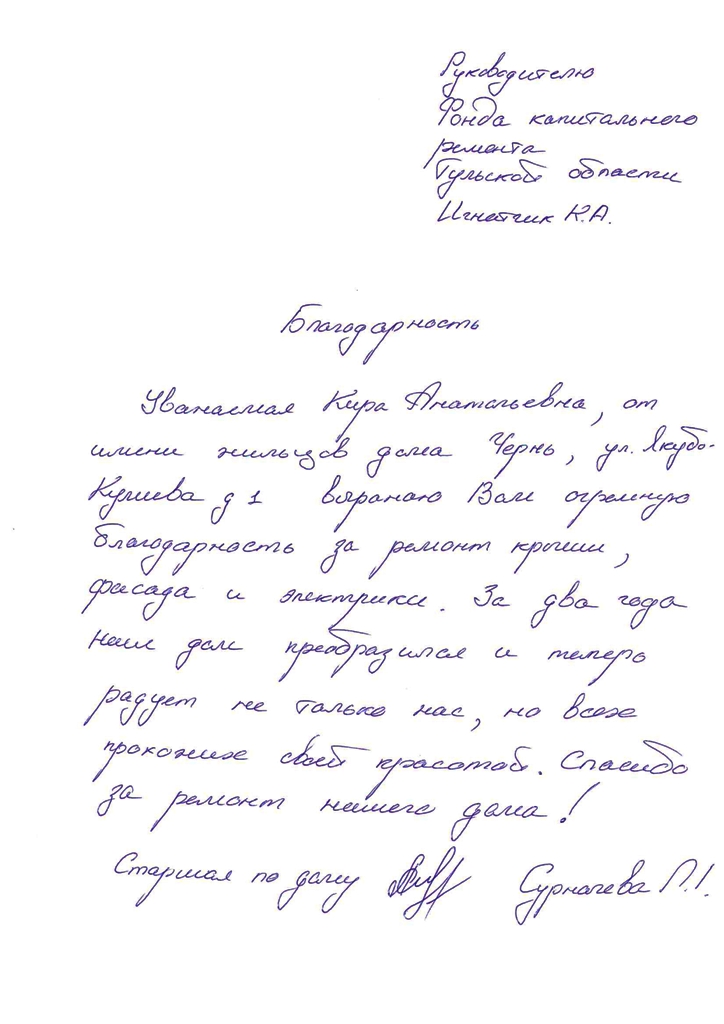 Руководителю
Фонда капитального
ремонта
Тульской области
Игнатчик К.А.
Благодарность
Уважаемая Кира Анатольевна, от
имени жильцов дома Чернь, ул. Якубо-
Кулиева д 1 выражаю Вам огромную
благодарность за ремонт крыши,
фасада и электрики. За два года
наш дом преобразился и теперь
радует не только нас, но всех
прохожих своей красотой. Спасибо
за ремонт нашего дома!
Старшая по дому